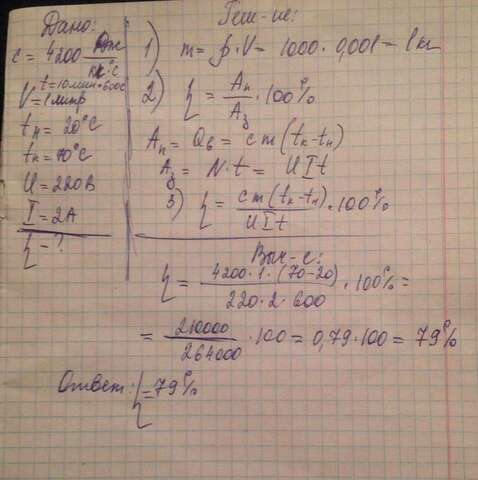 Дано:
c = 4200 Дж/кг°С
t = 10 мин = 600 с
V = 1 литр
tн = 20°С
tк = 70°С
U = 220 В
I = 2 А
η - ?
Реш-ие:
1) m = ρ · V = 1000 · 0,001 = 1 кг
2) η = Aп/Aз · 100%
Aп = Qв = cm(tк - tн)
Aз = N · t = UIt
3) η = cm(tк - tн)/UIt · 100%
Выч-е:
η = 4200 · 1 · (70 - 20)/220 · 2 · 600 · 100% =
= 210000/264000 · 100 = 0,79 · 100 = 79%
Ответ: η = 79%